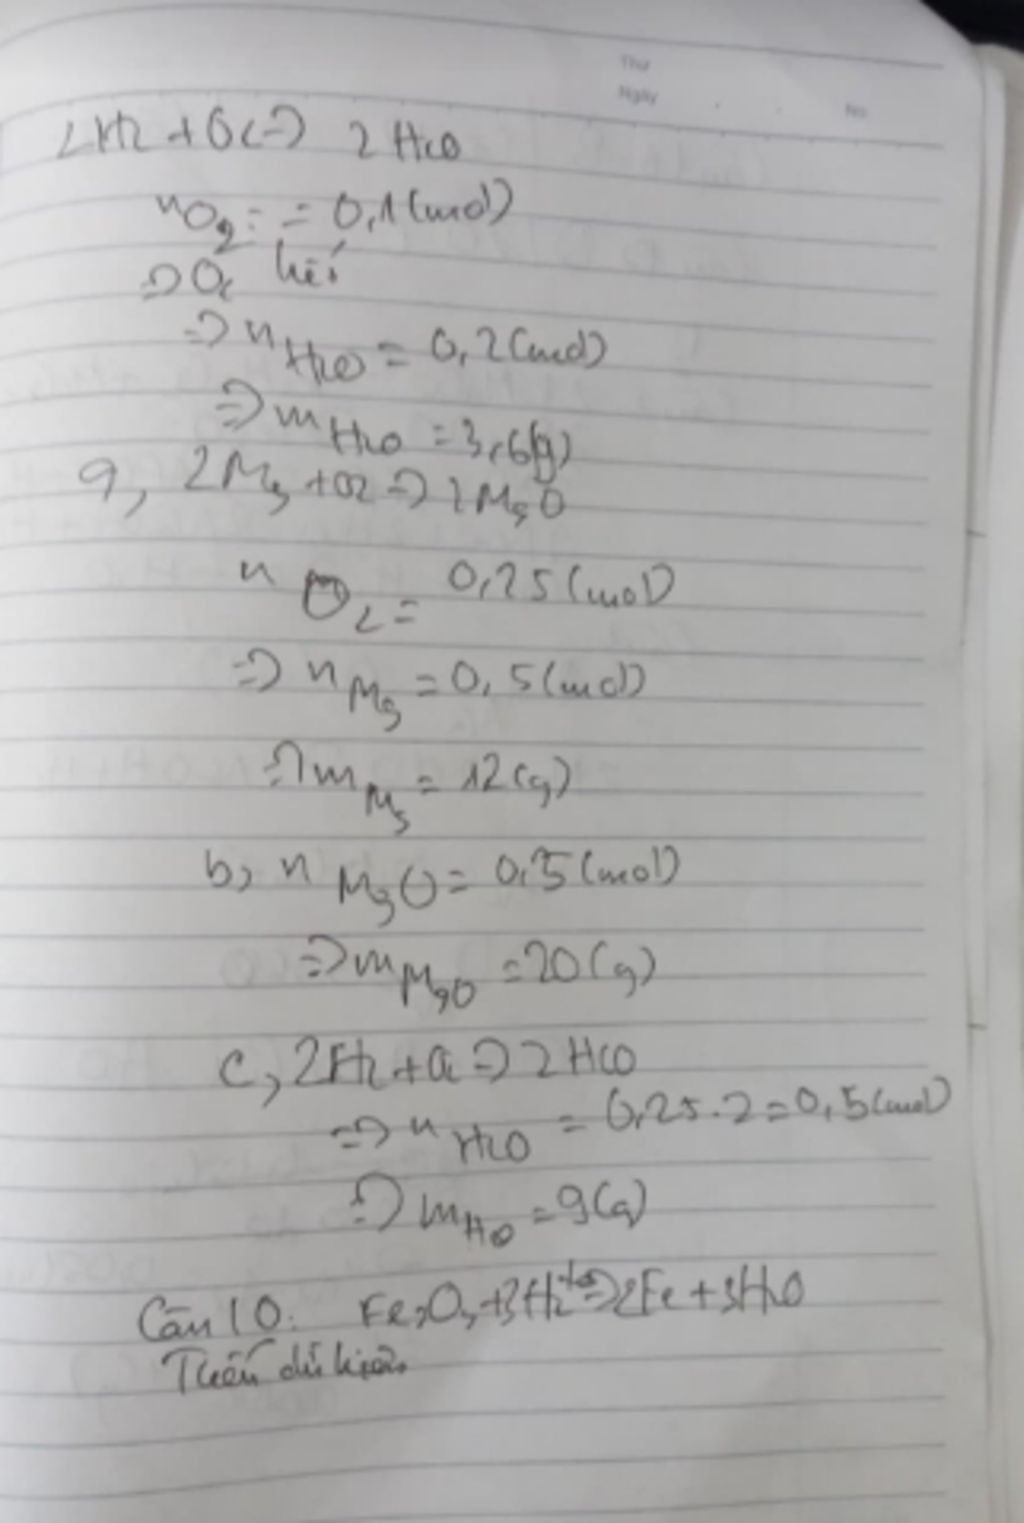 Thứ
Ngày No.
2H2 + O2 => 2H2O
nO2 = = 0,1 (mol)
=> O2 hết
=> nH2O = 0,2 (mol)
=> mH2O = 3,6 (g)
9, 2Mg + O2 => 2MgO
nO2 = 0,25 (mol)
=> nMg = 0,5 (mol)
=> mMg = 12 (g)
b, nMgO = 0,5 (mol)
=> mMgO = 20 (g)
c, 2H2 + O2 => 2H2O
=> nH2O = 0,25.2 = 0,5 (mol)
=> mH2O = 9 (g)
Câu 10: Fe2O3 + 3H2 => 2Fe + 3H2O
Thiếu dữ kiện